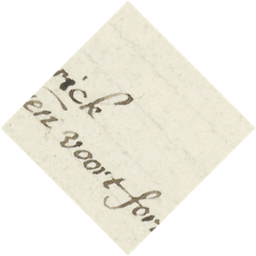 rick
en voort for